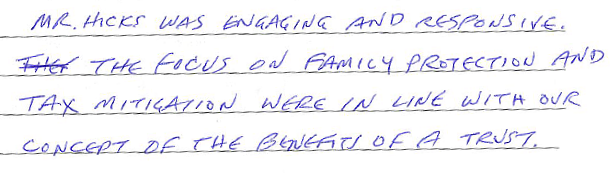 MR. HICKS WAS ENGAGING AND RESPONSIVE.
THE FOCUS ON FAMILY PROTECTION AND
TAX MITIGATION WERE IN LINE WITH OUR
CONCEPT OF THE BENEFITS OF A TRUST.